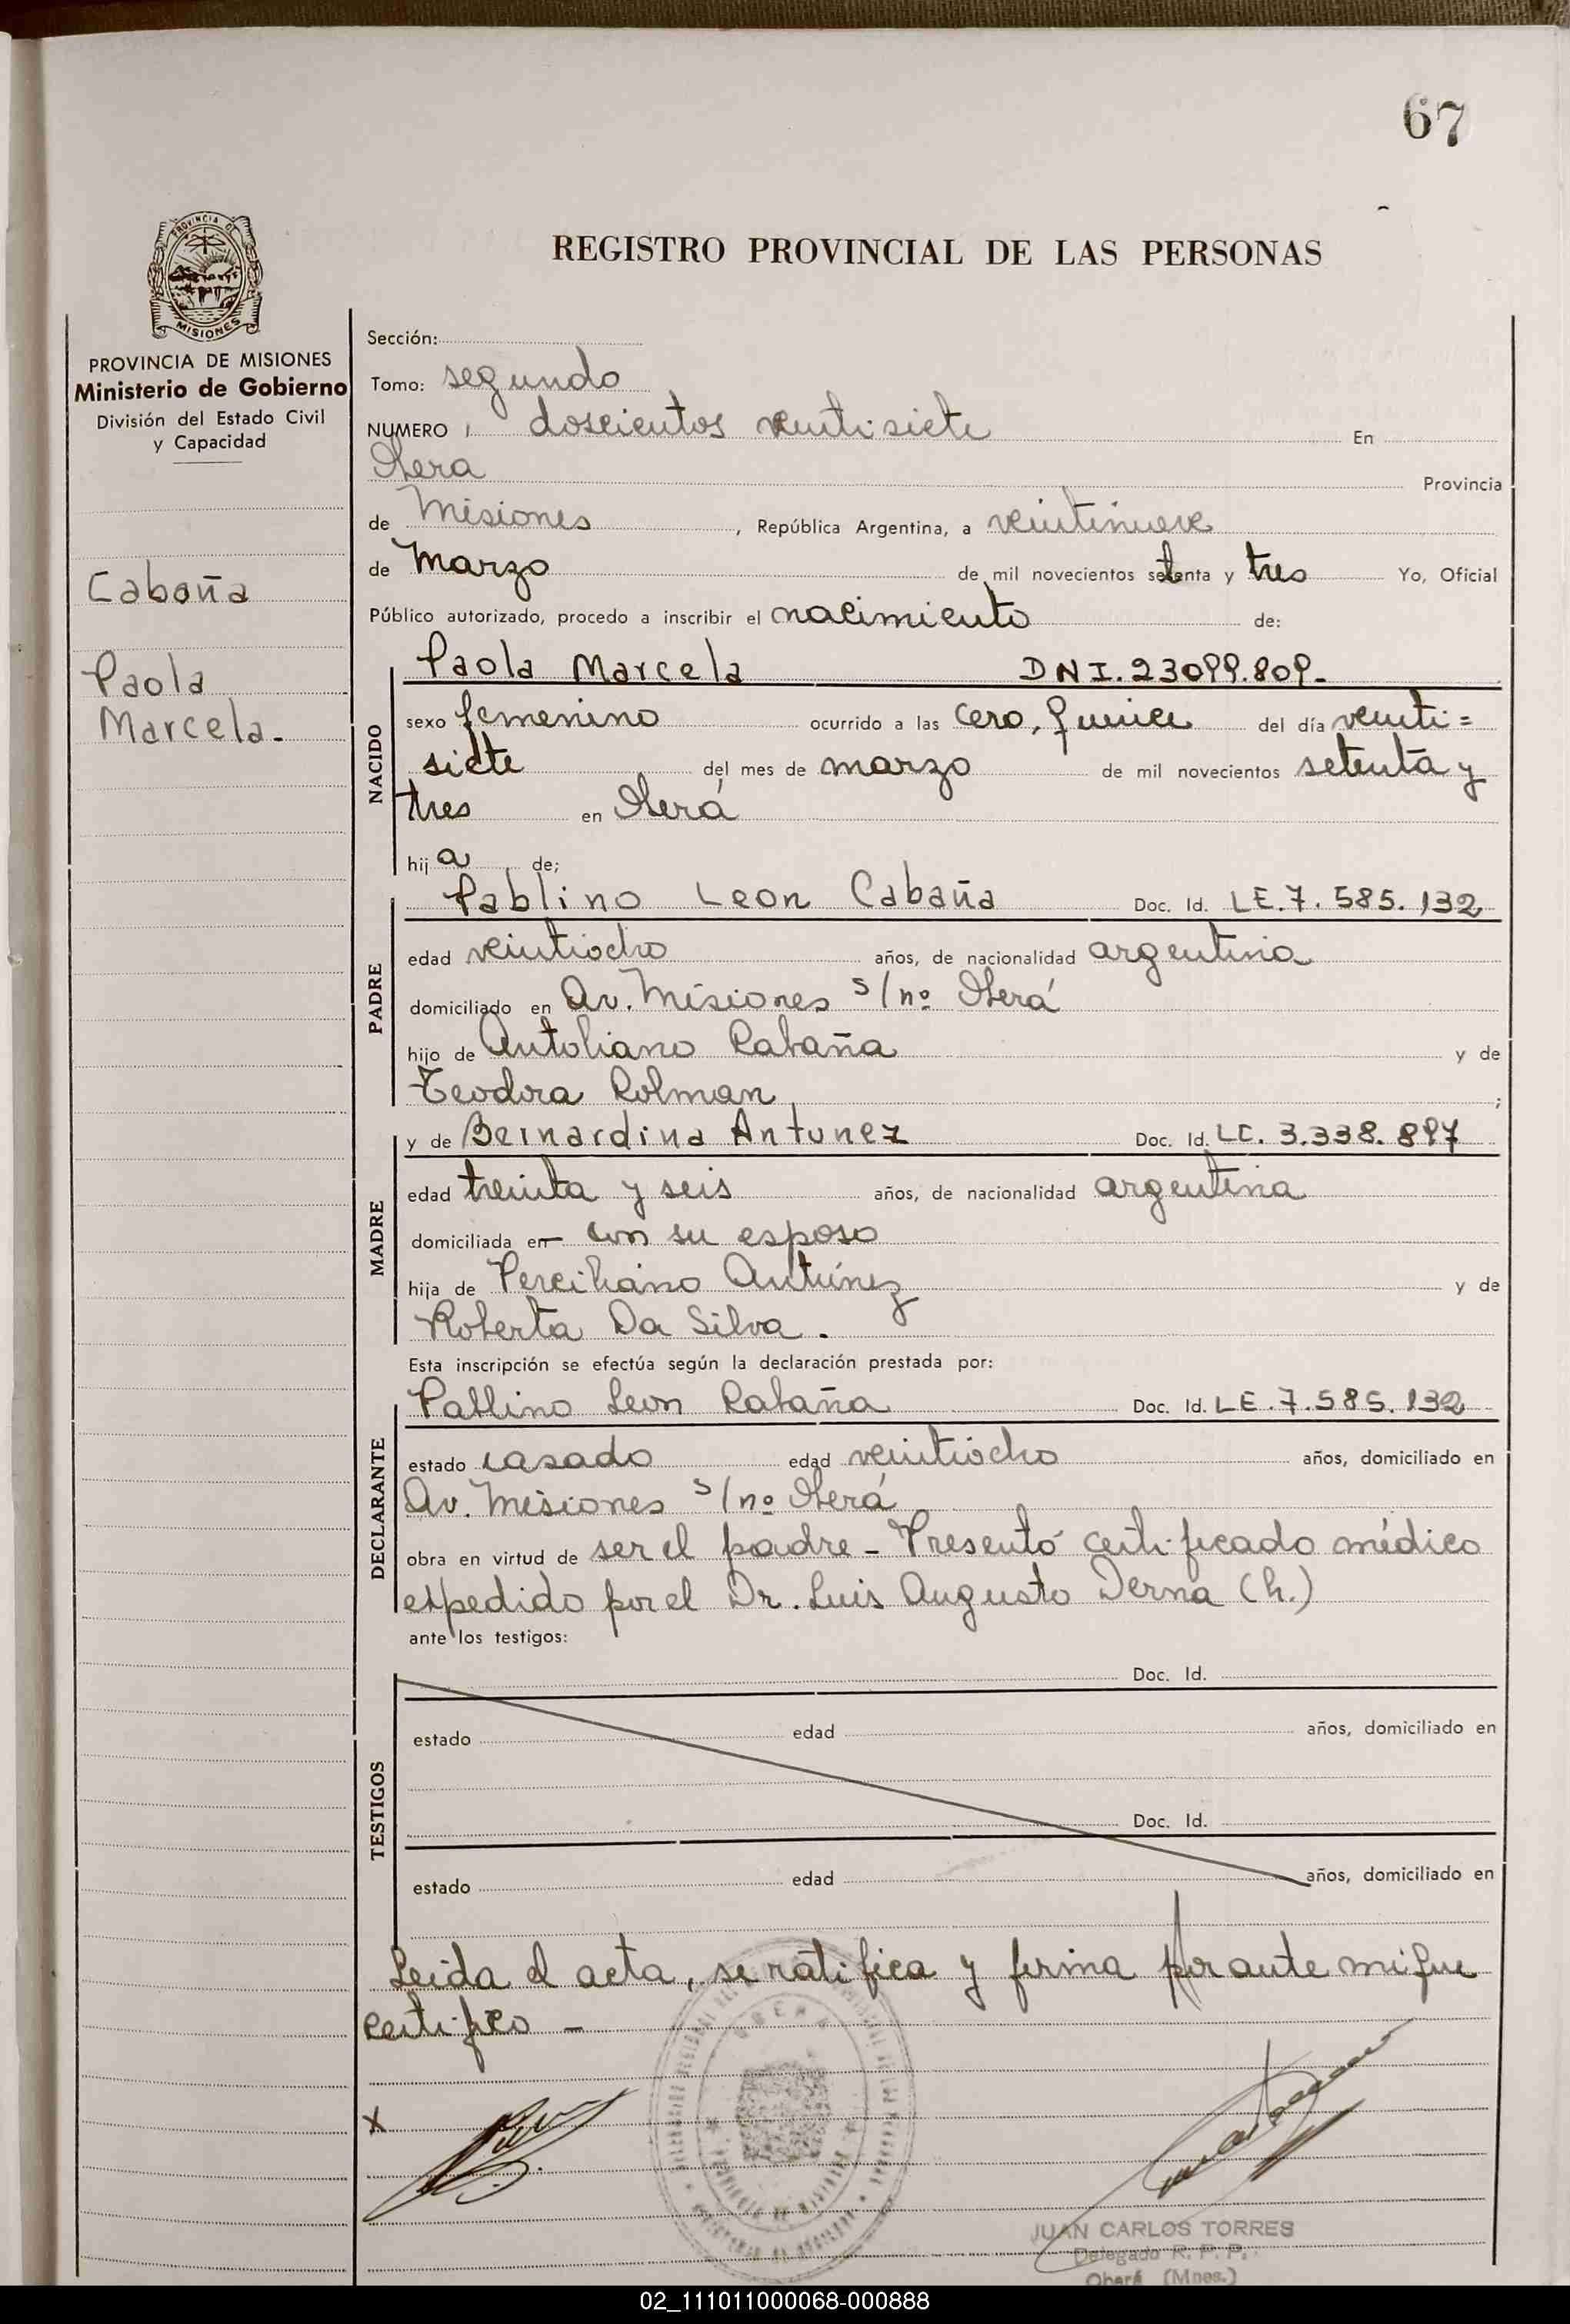 67
PROVINCIA DE
MISIONES
REGISTRO PROVINCIAL DE LAS PERSONAS
PROVINCIA DE MISIONES
Ministerio de Gobierno
División del Estado Civil
y Capacidad
Cabaña
Paola
Marcela.-
Sección:
Tomo: segundo
NUMERO doscientos veintisiete En
Oberá Provincia
de Misiones, República Argentina, a veintinueve
de Marzo de mil novecientos setenta y tres Yo, Oficial
Público autorizado, procedo a inscribir el nacimiento de:
NACIDO
Paola Marcela DNI.23099.809.-
sexo femenino ocurrido a las cero, quince del día veinti=
siete del mes de marzo de mil novecientos setenta y
tres en Oberá
hija de;
PADRE
Pablino Leon Cabaña Doc. Id. LE.7.585.132
edad veintiocho años, de nacionalidad argentina
domiciliado en Av. Misiones s/nº Oberá
hijo de Antoliano Cabaña y de
Teodora Rolman;
MADRE
y de Bernardina Antunez Doc. Id. LC. 3.338.897
edad treinta y seis años, de nacionalidad argentina
domiciliada en con su esposo
hija de Perciliano Antúnez y de
Roberta Da Silva.
Esta inscripción se efectúa según la declaración prestada por:
DECLARANTE
Pablino Leon Cabaña Doc. Id. LE.7.585.132
estado casado edad veintiocho años, domiciliado en
Av. Misiones s/nº Oberá
obra en virtud de ser el padre - Presentó certificado médico
expedido por el Dr. Luis Augusto Derna (h.)
ante los testigos:
TESTIGOS
Doc. Id.
estado edad años, domiciliado en
Doc. Id.
estado edad años, domiciliado en
Leida el acta, se ratifica y firma por ante mi que
certifico -
x
JUAN CARLOS TORRES
Delegado R. P. P.
Oberá (Mnes.)
02_111011000068-000888